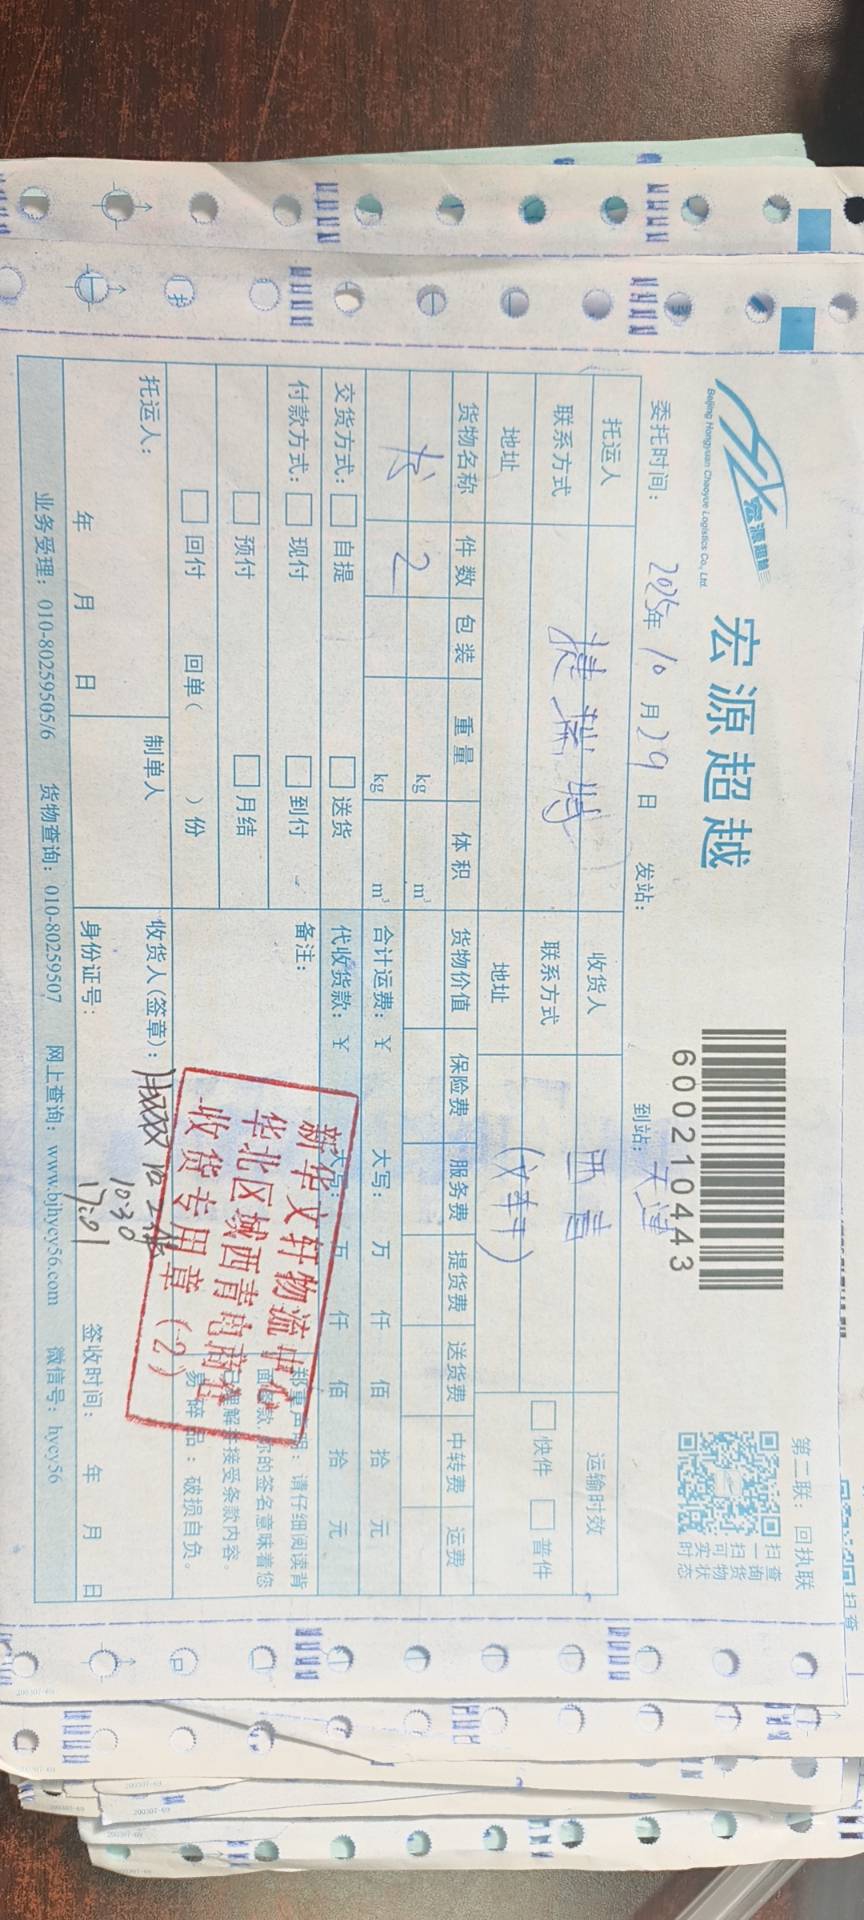 宏源超越
Beijing Hongyuan Chaoyue Logistics Co., Ltd.
宏源超越
600210443
第二联：回执联
扫一扫可实时
查询货物状态
委托时间：2025年10月29日 发站： 到站：天津
托运人 捷瑞特 收货人 西青 运输时效
联系方式 联系方式 (文轩) 快件 普件
地址 地址
货物名称 件数 包装 重量 体积 货物价值 保险费 服务费 提货费 送货费 中转费 运费
2 kg m³
kg m³ 合计运费：￥ 大写： 万 仟 佰 拾 元
交货方式： 自提 送货 代收货款：￥ 大写： 万 仟 佰 拾 元
付款方式： 现付 到付 备注：
预付 月结
回付 回单( )份
郑重声明：请仔细阅读背
面条款.你的签名意味着您
已理解并接受条款内容。
易碎品：破损自负。
新华文轩物流中心
华北区域西青电商仓
收货专用章(2)
托运人： 制单人 收货人(签章)：
10:30
17:01
年 月 日 身份证号： 签收时间： 年 月 日
业务受理：010-80259505/6 货物查询：010-80259507 网上查询：www.bjhycy56.com 微信号：hycy56